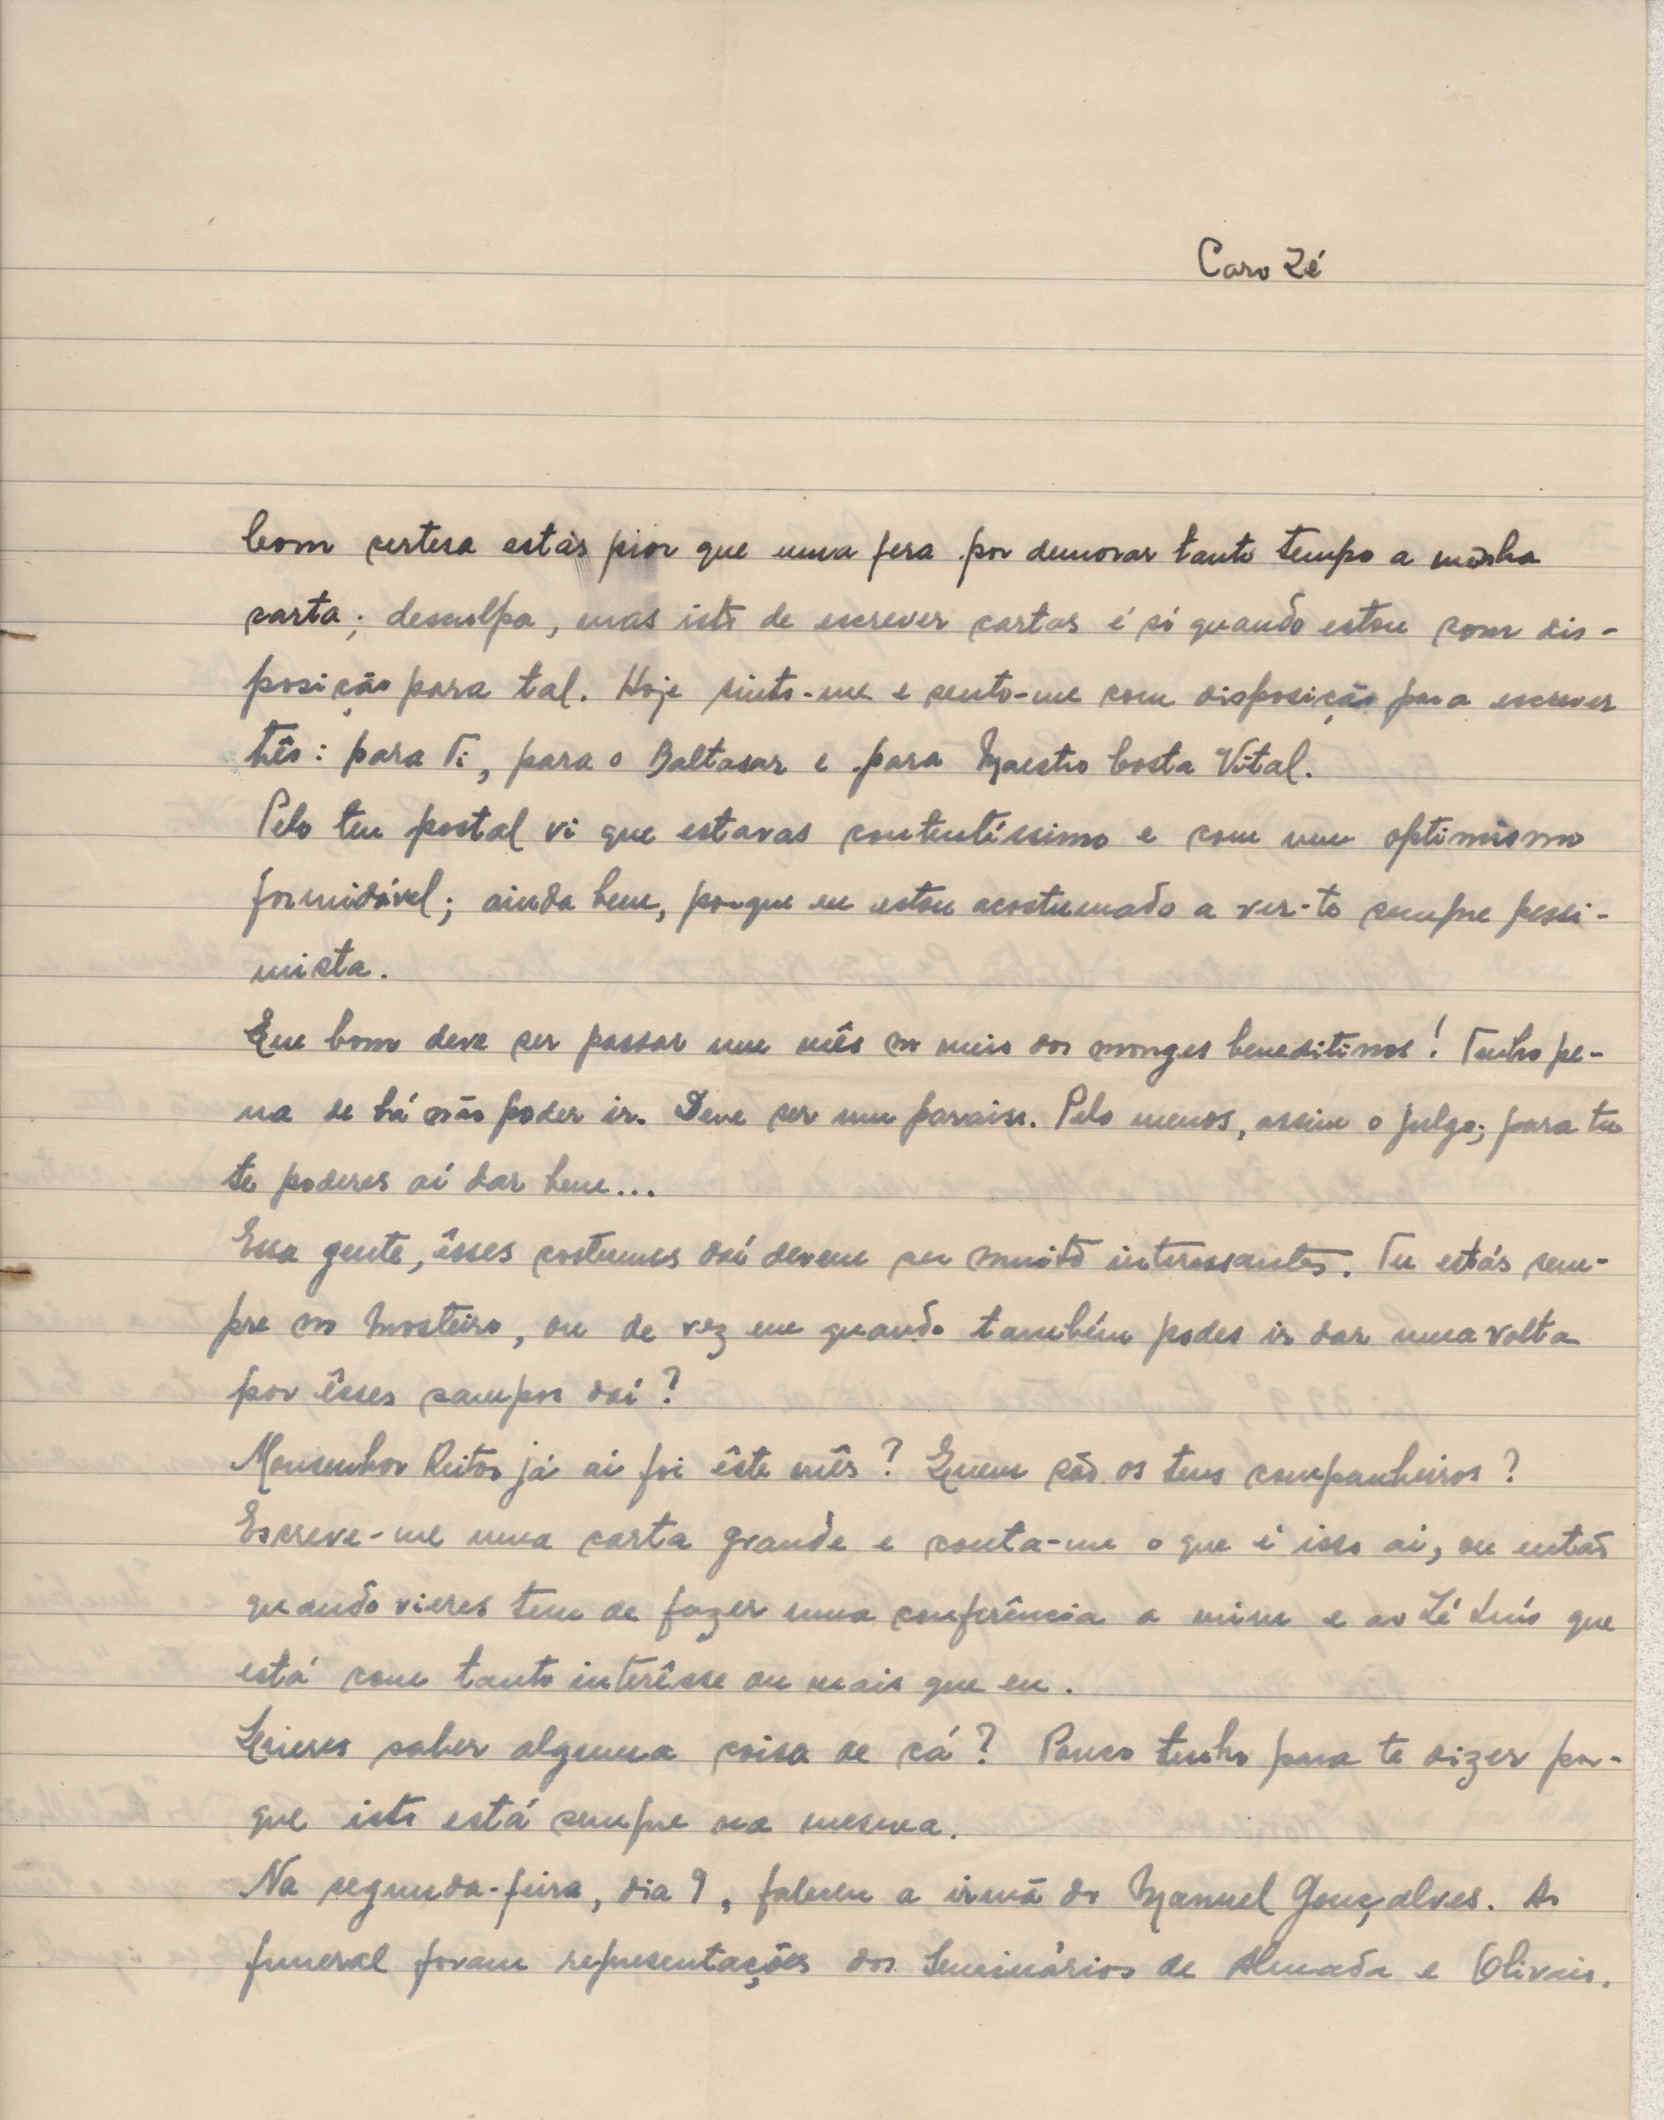 Caro Zé
Com certesa estás pior que uma fera por demorar tanto tempo a minha
carta; desculpa, mas isto de escrever cartas é só quando estou com dis-
posição para tal. Hoje sinto-me e sento-me com disposição para escrever
três: para Ti, para o Baltasar e para Maestro Costa Vital.
Pelo teu postal vi que estavas contentíssimo e com um optimismo
formidável; ainda bem, porque eu estou acostumado a ver-te sempre pessi-
mista.
Que bom deve ser passar um mês no meio dos monges beneditinos! Tenho pe-
na de lá não poder ir. Deve ser um paraiso. Pelo menos, assim o julgo; para tu
te poderes aí dar bem...
Essa gente, êsses costumes daí devem ser muito interessantes. Tu estás sem-
pre no Mosteiro, ou de vez em quando também podes ir dar uma volta
por êsses campos daí?
Monsenhor Reitor já aí foi êste mês? Quem são os teus companheiros?
Escreve-me uma carta grande e conta-me o que é isso aí, ou então
quando vieres tem de fazer uma conferência a mim e ao Zé Luís que
está com tanto interêsse ou mais que eu.
Queres saber alguma coisa de cá? Pouco tenho para te dizer por-
que isto está sempre na mesma.
Na segunda-feira, dia 9, faleceu a irmã do Manuel Gonçalves. Ao
funeral foram representações dos Seminários de Almada e Olivais.